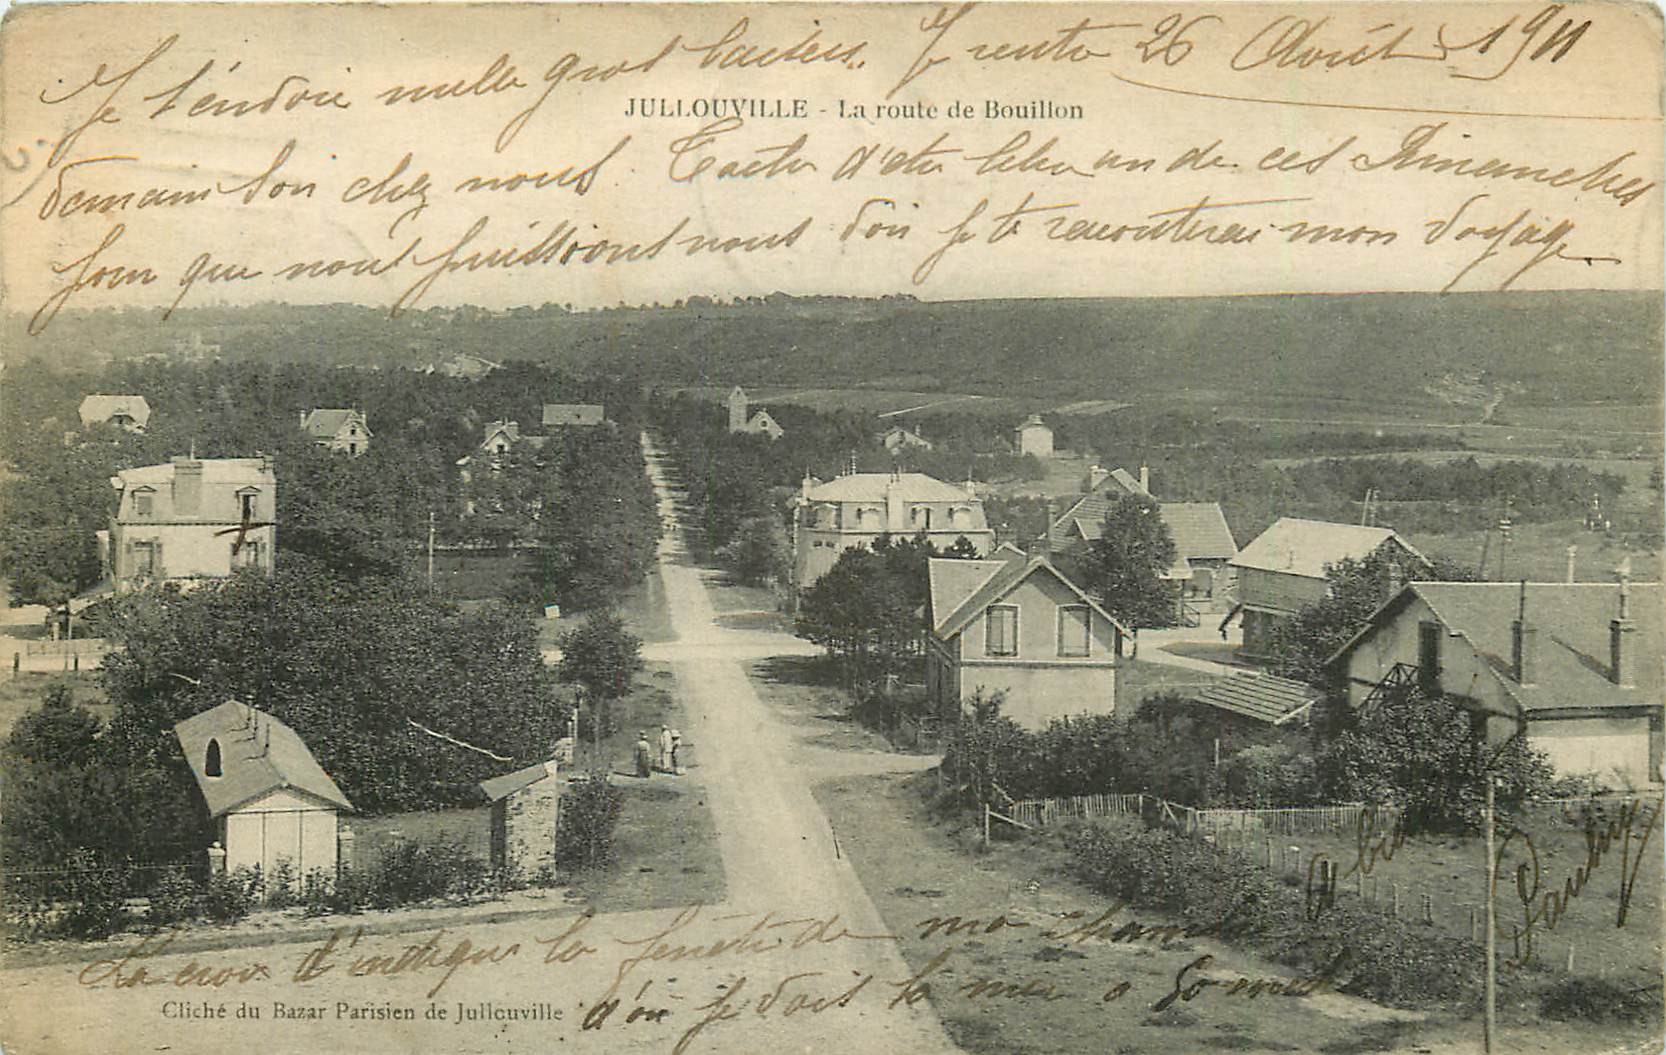 26 Août 1911
Je t'envoie mille gros baisers. Je rentre
JULLOUVILLE - La route de Bouillon
demain soir chez nous. Tache d'être libre un de ces Dimanches
pour que nous puissions nous voir je te raconterai mon voyage.
a bientôt
Pauley
La croix t'indique la fenêtre de ma chambre
d'où je vois la mer a
Cliché du Bazar Parisien de Jullouville